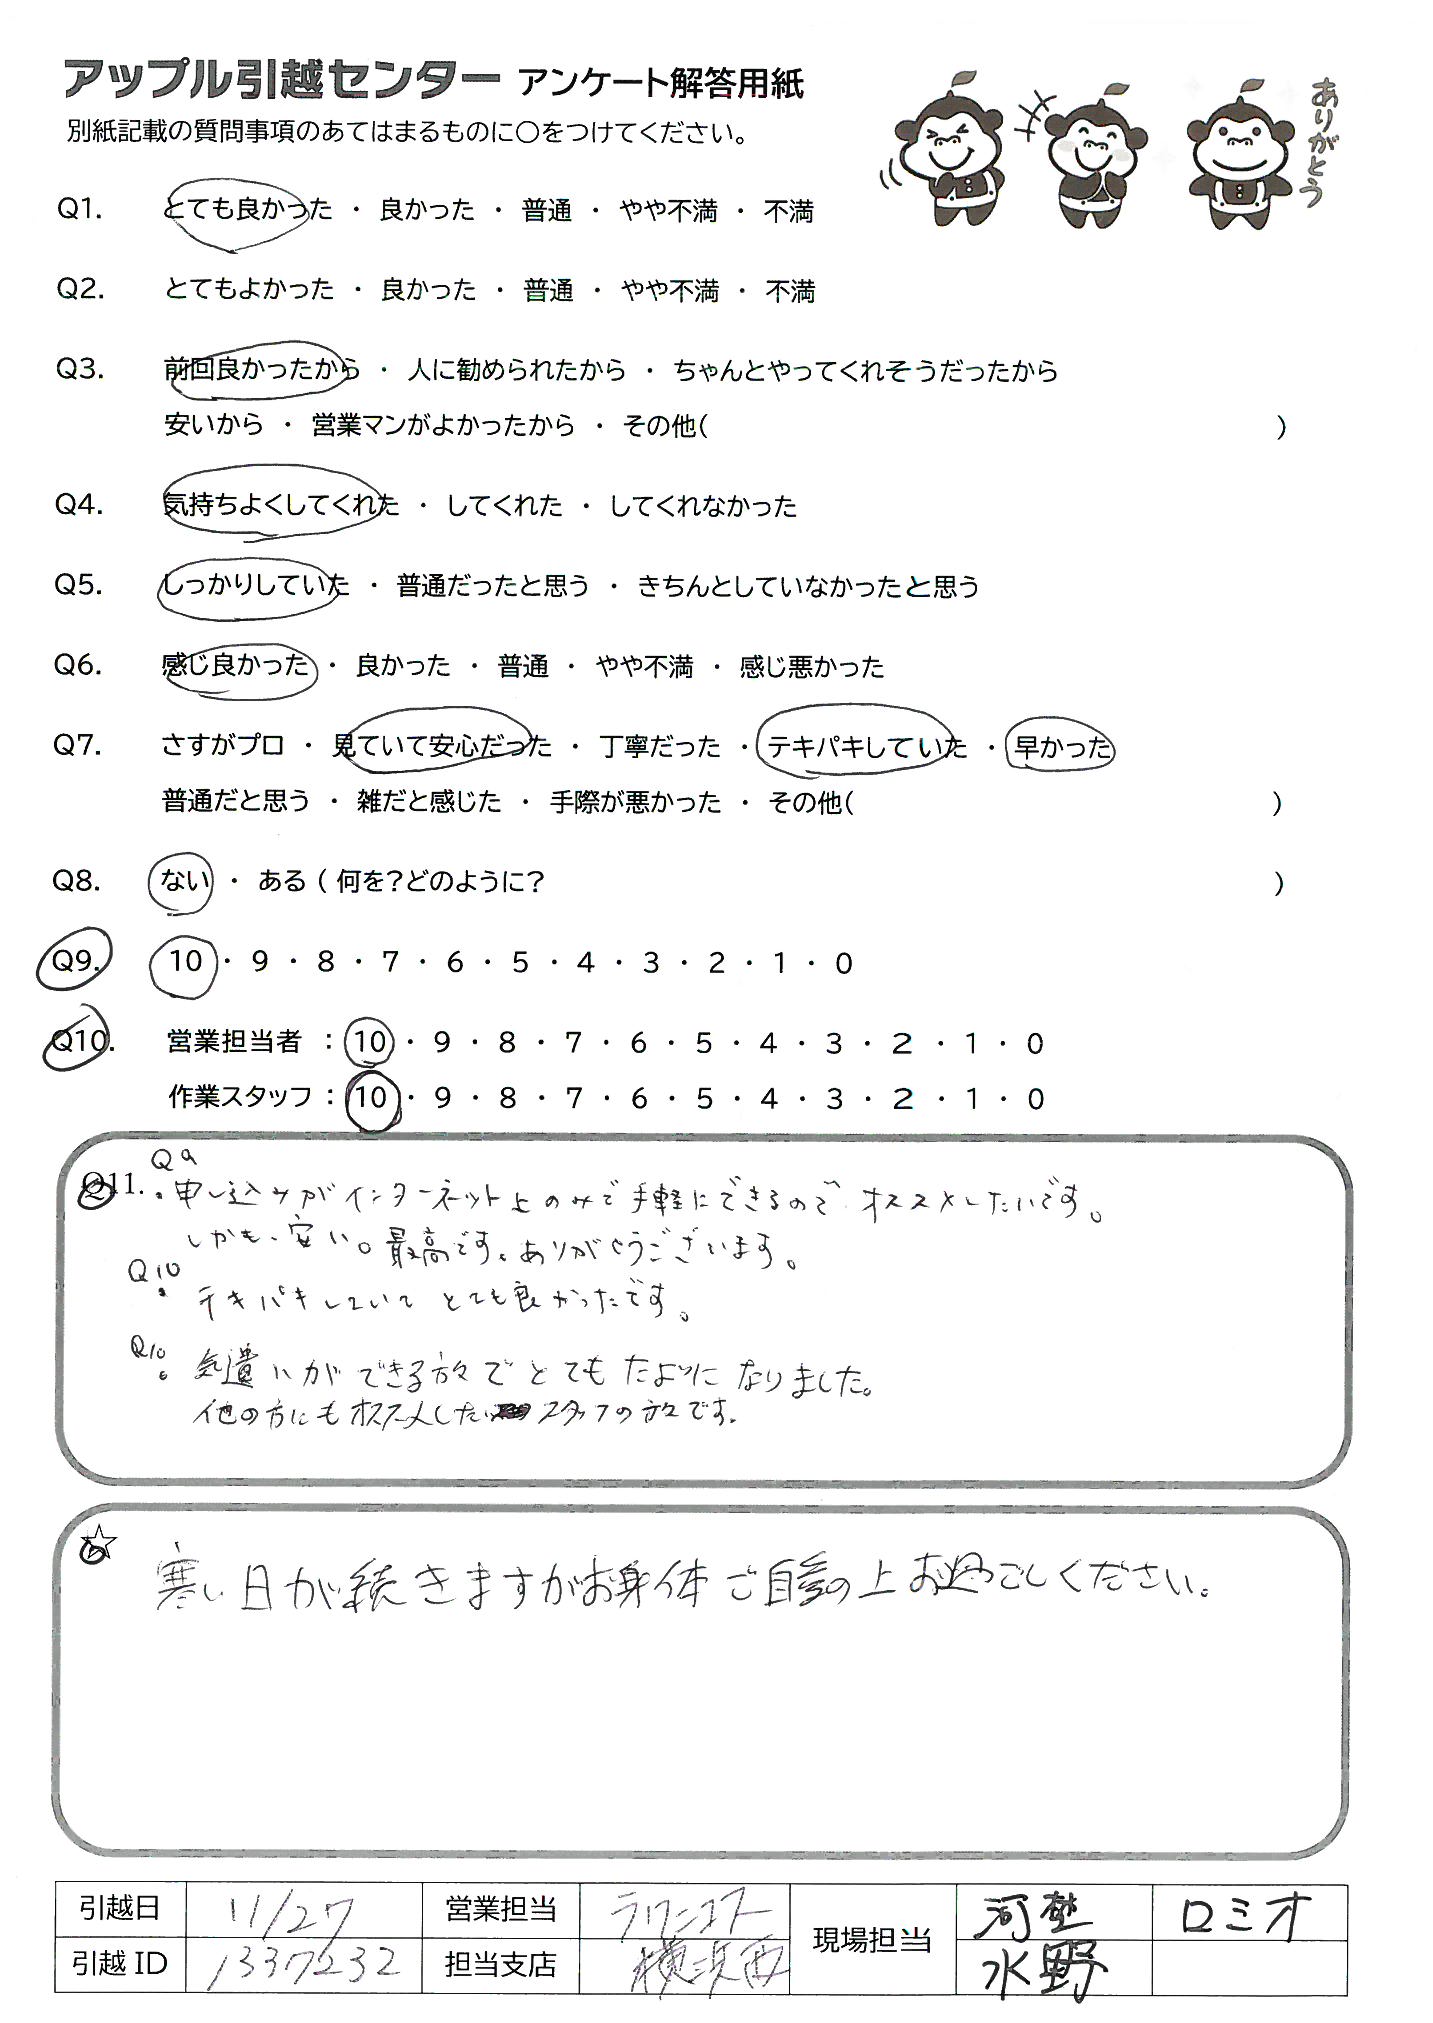 アップル引越センター アンケート解答用紙
別紙記載の質問事項のあてはまるものに〇をつけてください。
ありがとう
Q1. とても良かった ・ 良かった ・ 普通 ・ やや不満 ・ 不満
Q2. とてもよかった ・ 良かった ・ 普通 ・ やや不満 ・ 不満
Q3. 前回良かったから ・ 人に勧められたから ・ ちゃんとやってくれそうだったから
安いから ・ 営業マンがよかったから ・ その他( )
Q4. 気持ちよくしてくれた ・ してくれた ・ してくれなかった
Q5. しっかりしていた ・ 普通だったと思う ・ きちんとしていなかったと思う
Q6. 感じ良かった ・ 良かった ・ 普通 ・ やや不満 ・ 感じ悪かった
Q7. さすがプロ ・ 見ていて安心だった ・ 丁寧だった ・ テキパキしていた ・ 早かった
普通だと思う ・ 雑だと感じた ・ 手際が悪かった ・ その他( )
Q8. ない ・ ある ( 何を?どのように? )
Q9. 10 ・ 9 ・ 8 ・ 7 ・ 6 ・ 5 ・ 4 ・ 3 ・ 2 ・ 1 ・ 0
Q10. 営業担当者 : 10 ・ 9 ・ 8 ・ 7 ・ 6 ・ 5 ・ 4 ・ 3 ・ 2 ・ 1 ・ 0
作業スタッフ : 10 ・ 9 ・ 8 ・ 7 ・ 6 ・ 5 ・ 4 ・ 3 ・ 2 ・ 1 ・ 0
Q9
Q11. ・申し込みがインターネット上のみで手軽にできるので オススメしたいです。
しかも、安い。最高です。ありがとうございます。
Q10
・ テキパキしていて とても良かったです。
Q10
・ 気遣いができる方々で とても たよりに なりました。
他の方にも オススメしたい スタッフの方々です。
☆
寒い日が続きますがお身体ご自愛の上お過ごしください。
引越日 11/27 営業担当 ラクニコスト 現場担当 河埜 ロミオ
引越 ID 1337232 担当支店 横浜西 水野